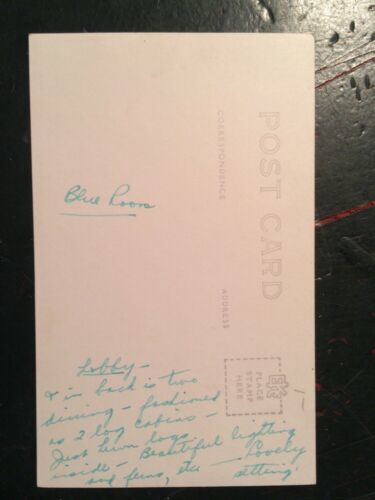 POST CARD
CORRESPONDENCE
ADDRESS
PLACE
STAMP
HERE
Blue
Lobby -
& in back is two
dining - fashioned
as 2 log cabins -
Just hewn logs
inside - Beautiful lighting
and ferns, etc Lovely
setting.